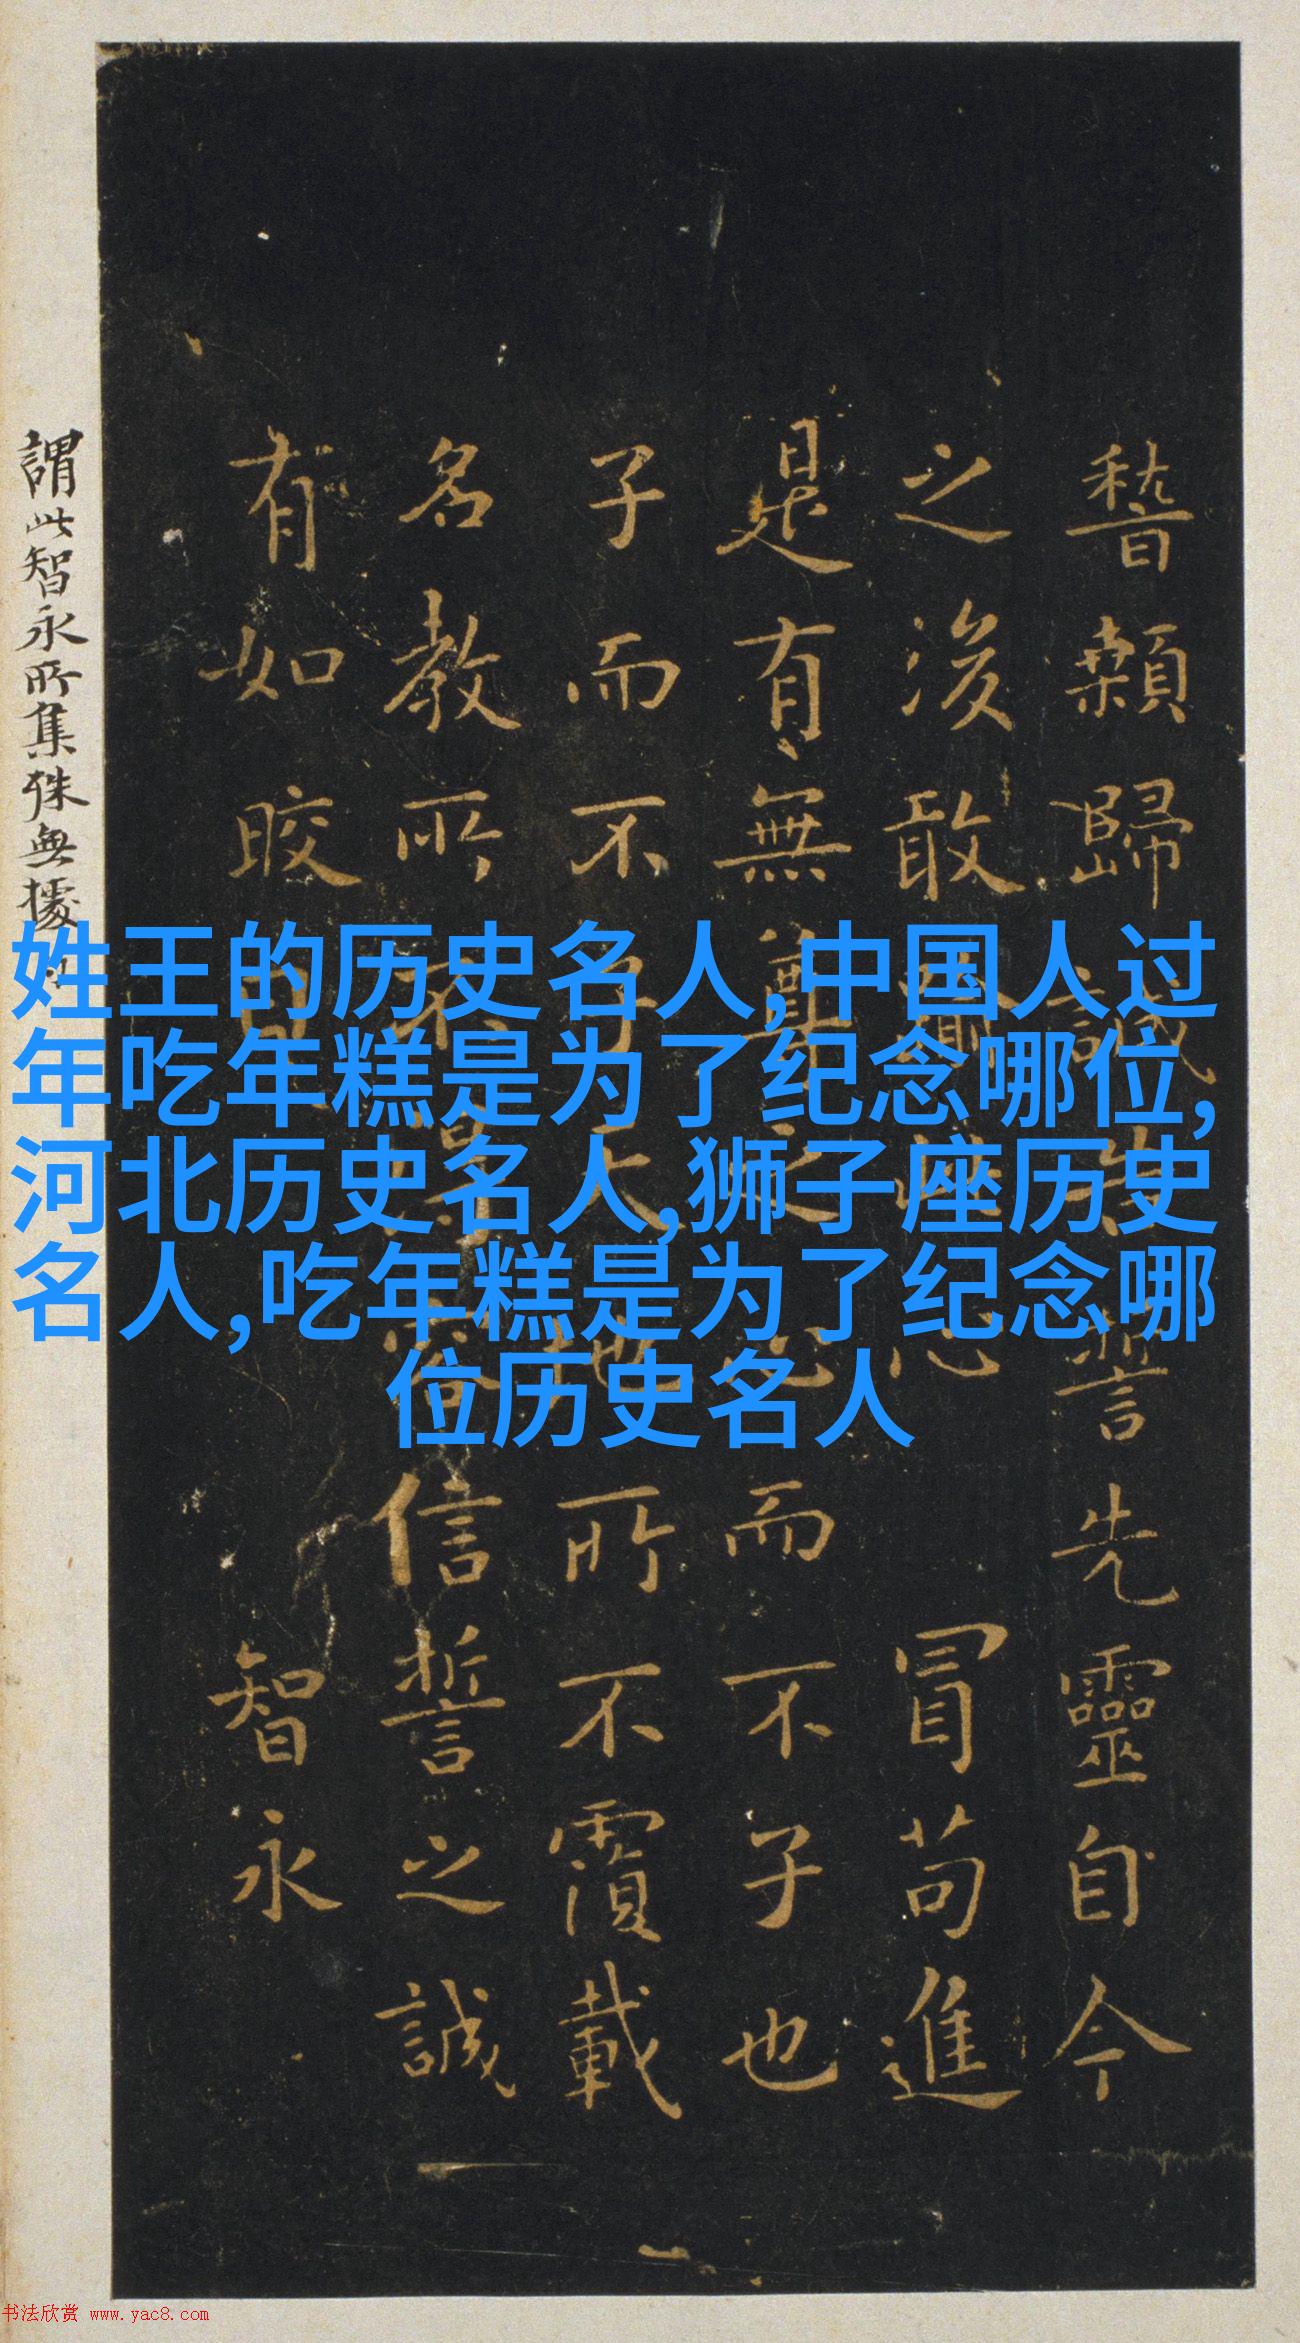 稽顙歸誠告誓先靈自今
之後敢渝此心 冒苟進
是有無尊之心而不子也
子而不子天地所不覆載
名教所不得容信誓之誠
有如皎日 智永
謂此智永所集殊無據
姓王的历史名人,中国人过
年吃年糕是为了纪念哪位,
河北历史名人,狮子座历史
名人,吃年糕是为了纪念哪
位历史名人
书法欣赏 www.yac8.com